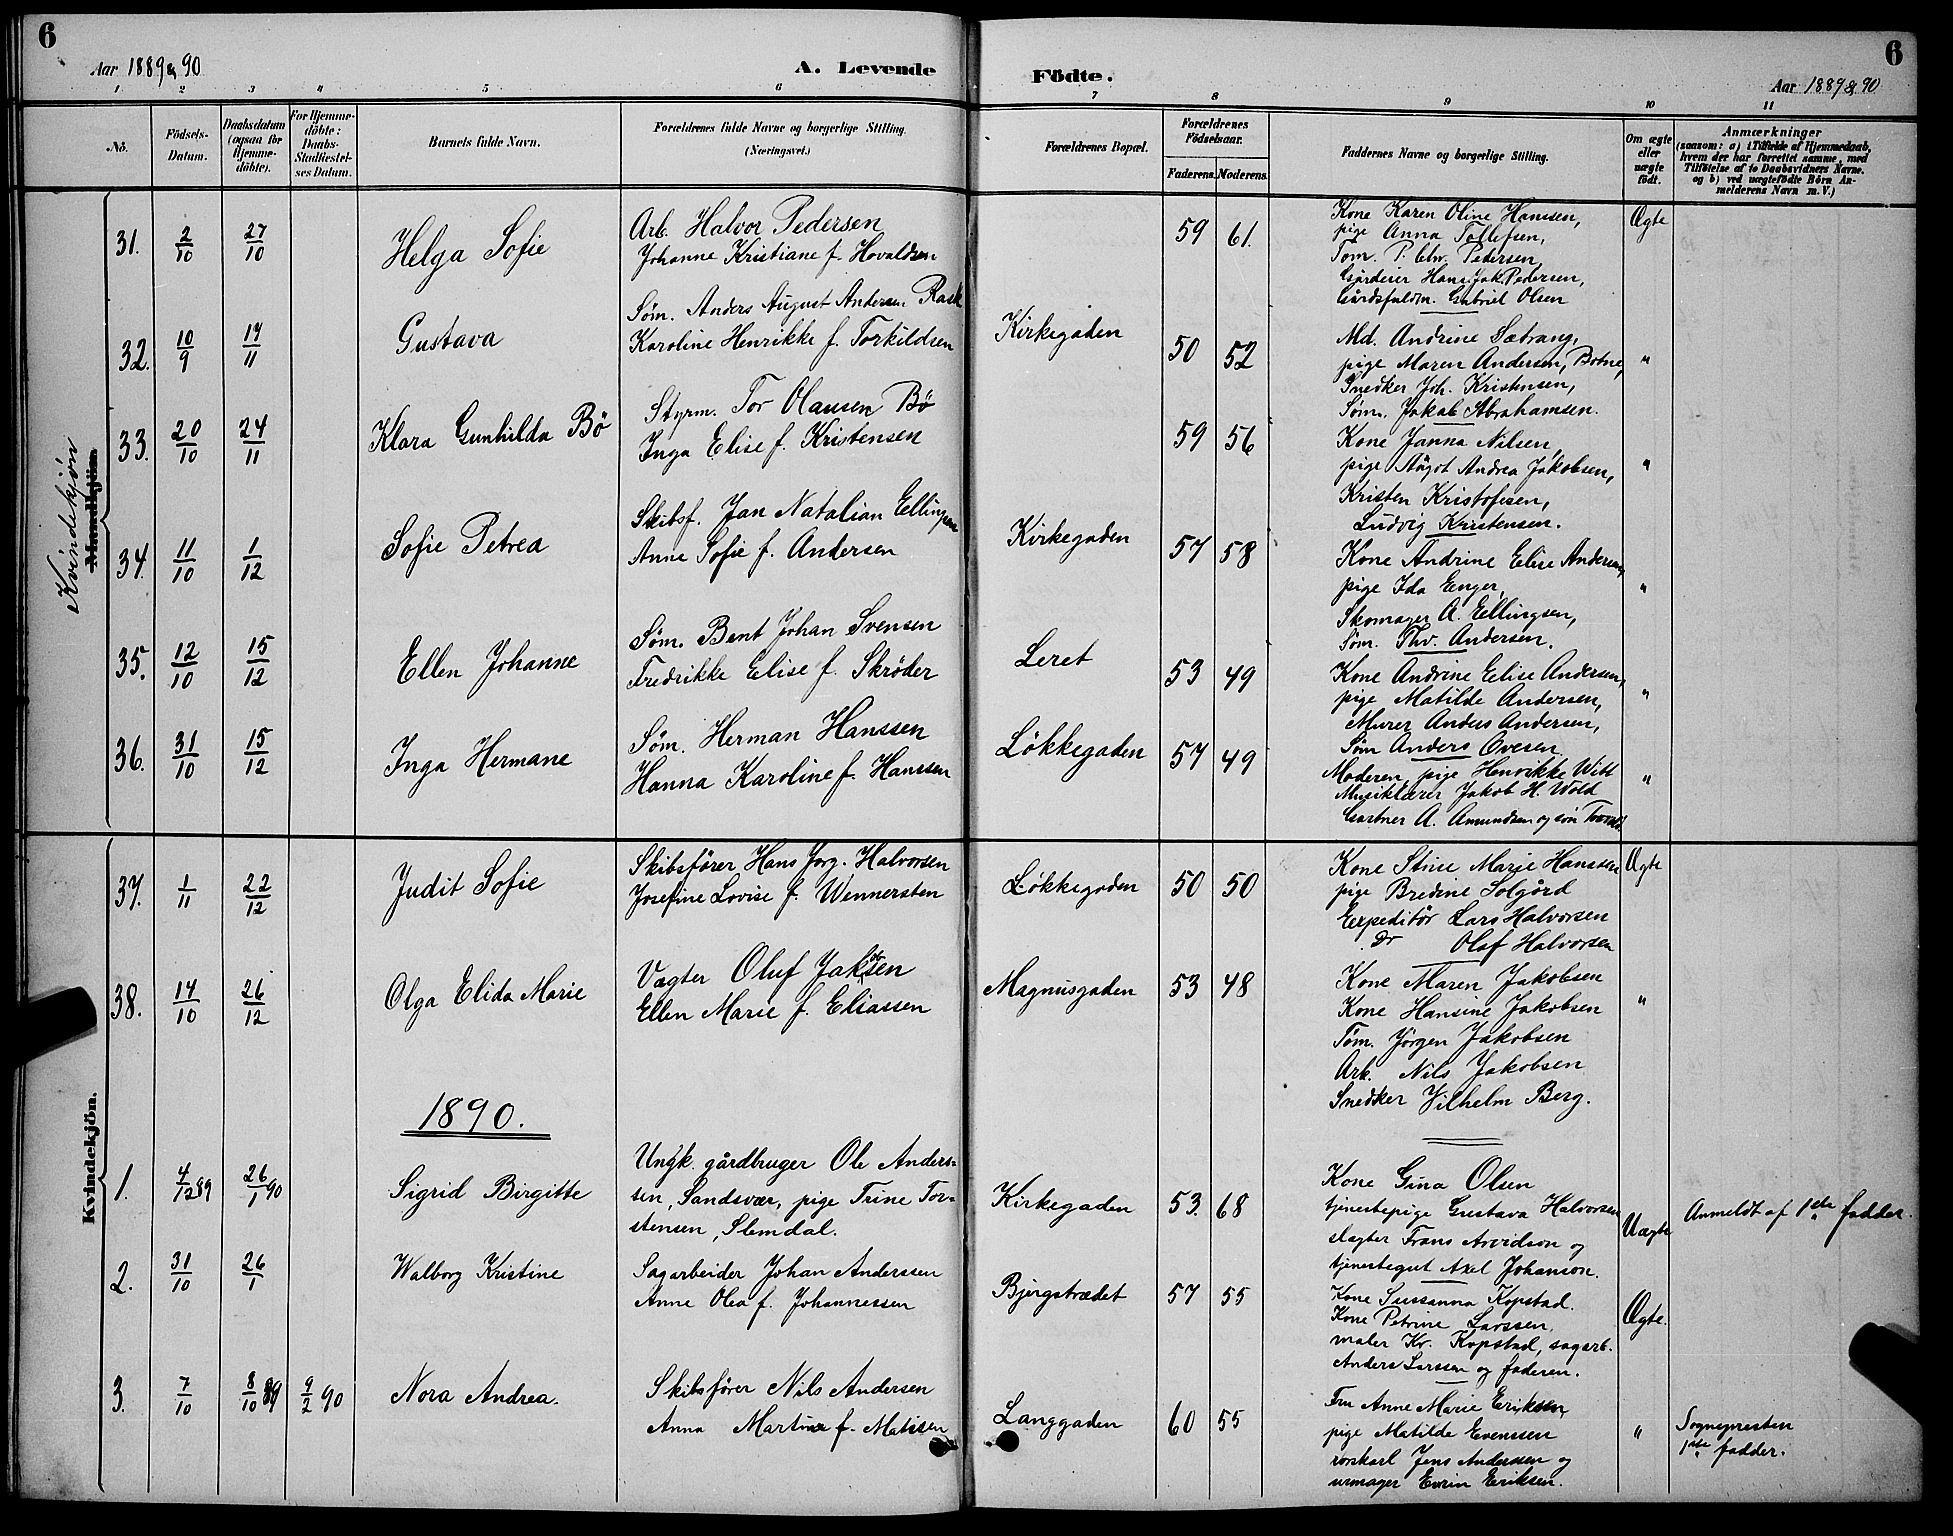 6
Aar 1889 & 90
A. Levende
Födte.
Aar 1889 & 90
6
1 2 3 4 5 6 7 8 9 10 11
No.
Födsels-Datum.
Daabsdatum (ogsaa for Hjemme-döbte).
For Hjemme-döbte: Daabs-Stadfæstel-ses Datum.
Barnets fulde Navn.
Forældrenes fulde Navne og borgerlige Stilling.
(Næringsvei.)
Forældrenes Bopæl.
Forældrenes Födselsaar.
Faderens. Moderens.
Faddernes Navne og borgerlige Stilling.
Om ægte eller uægte födt.
Anmærkninger
(saasom: a) i Tilfælde af Hjemmedaab,
hvem der har forrettet samme, med
Tilföielse af to Daabsvidners Navne.
og b) ved uægtefödte Börn An-
melderens Navn m. V.)
Mandkjön.
Kvindekjön
31. 2/10 27/10 Helga Sofie
Arb. Halvor Pedersen
Johanne Kristiane f. Hovaldsen
59 61.
Kone Karen Oline Hanssen,
pige Anna Tollefsen,
Tøm. P. Chr. Pedersen
Gårdeier Hans Jak. Pedersen,
Gårdsfuldm. Gabriel Olsen
Ægte
32. 10/9 17/11 Gustava
Søm. Anders August Andersen Rask
Karoline Henrikke f. Torkildsen
Kirkegaden 50 52
Md. Andrine Sætrang,
pige Maren Andersen, Botne,
Snedker Joh. Kristensen,
Søm. Jakob Abrahamsen.
"
33. 20/10 24/11 Klara Gunhilda Bö
Styrm. Tor Olausen Bö
Inga Elise f. Kristensen
59 56
Kone Janna Nilsen,
pige Aågot Andrea Jakobsen,
Kristen Kristofesen,
Ludvig Kristensen.
"
34. 11/10 1/12 Sofie Petrea
Skibsf. Jan Natalian Ellingsen
Anne Sofie f. Andersen
Kirkegaden 57 58
Kone Andrine Elise Andersen,
pige Ida Enger,
Skomager A. Ellingsen,
Søm. Thv. Andersen.
"
35. 12/10 15/12 Ellen Johanne
Søm. Bent Johan Svensen
Fredrikke Elise f. Skrøder
Leret 53 49
Kone Andrine Elise Andersen,
pige Matilde Andersen,
Murer Anders Andersen,
Søm Anders Ovesen
"
36. 31/10 15/12 Inga Hermane
Søm. Herman Hanssen
Hanna Karoline f. Hanssen
Løkkegaden 57 49
Moderen, pige Henrikke Witt
Musiklærer Jakob H. Wold
Gartner A. Amundsen og søn
"
37. 1/11 22/12 Judit Sofie
Skibsfører Hans Jørg. Halvorsen
Josefine Lovise f. Wennersten
Løkkegaden 50 50
Kone Stine Marie Hanssen
pige Bredine Solgård
Expeditør Lars Halvorsen
Do Olaf Halvorsen
Ægte
38. 14/10 26/12 Olga Elida Marie
Vægter Oluf Jakobsen
Ellen Marie f. Eliassen
Magnusgaden 53 48
Kone Maren Jakobsen
Kone Hansine Jakobsen
Tøm. Jørgen Jakobsen
Arb. Nils Jakobsen
Snedker Vilhelm Berg.
"
1890.
Kvindekjön.
1. 4/12 89 26/1 90 Sigrid Birgitte
Ungk. gårdbruger Ole Anders-
sen, Sandsvær, pige Trine Tor-
stensen, Slemdal.
Kirkegaden 53. 68
Kone Gina Olsen
tjenestepige Gustava Halvorsen
slagter Frans Arvidson og
tjenestegut Axel Johanson.
Uægte
Anmeldt af 1ste fadder.
2. 31/10 26/1 Walborg Kristine
Sagarbeider Johan Anderssen
Anne Olea f. Johannessen
Bjergstrædet 57 55
Kone Sussanna Kopstad.
Kone Petrine Larssen.
maler Kr. Kopstad, sagarb.
Anders Larssen og faderen.
Ægte.
3. 7/10 8/10 89 9/2 90 Nora Andrea.
Skibsfører Nils Andersen
Anna Martina f. Matisen
Langgaden 60 55
Fru Anne Marie Eriksen,
pige Matilde Evenssen
rorskarl Jens Anderssen og
urmager Eriksen.
"
Sognepresten
1ste fadder.